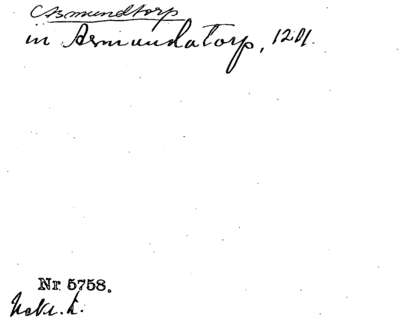 Asmundtorp
in Asmundatorp, 1201.
Nr 5758.